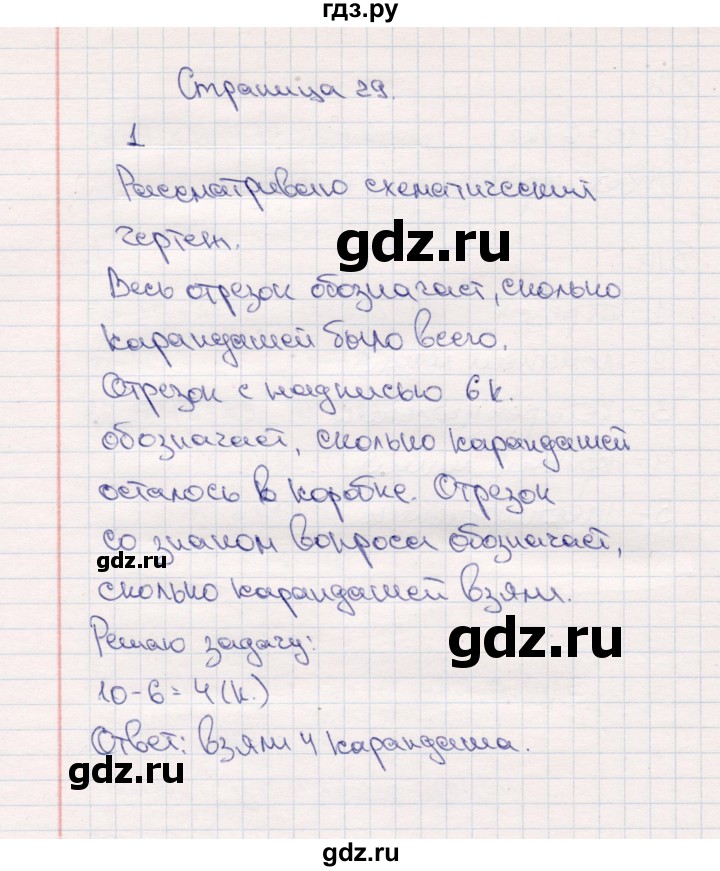 гдз.ру
Страница 29.
1
Рассматриваю схематический
чертеж.
gdz.ru
Весь отрезок обозначает, сколько
карандашей было всего.
Отрезок с надписью 6 к.
обозначает, сколько карандашей
осталось в коробке. Отрезок
со знаком вопроса обозначает,
gdz.ru
сколько карандашей взяли.
gdz.ru
Решаю задачу:
10-6=4(к.)
Ответ: взяли 4 карандаша.
gdz.ru
gdz.ru